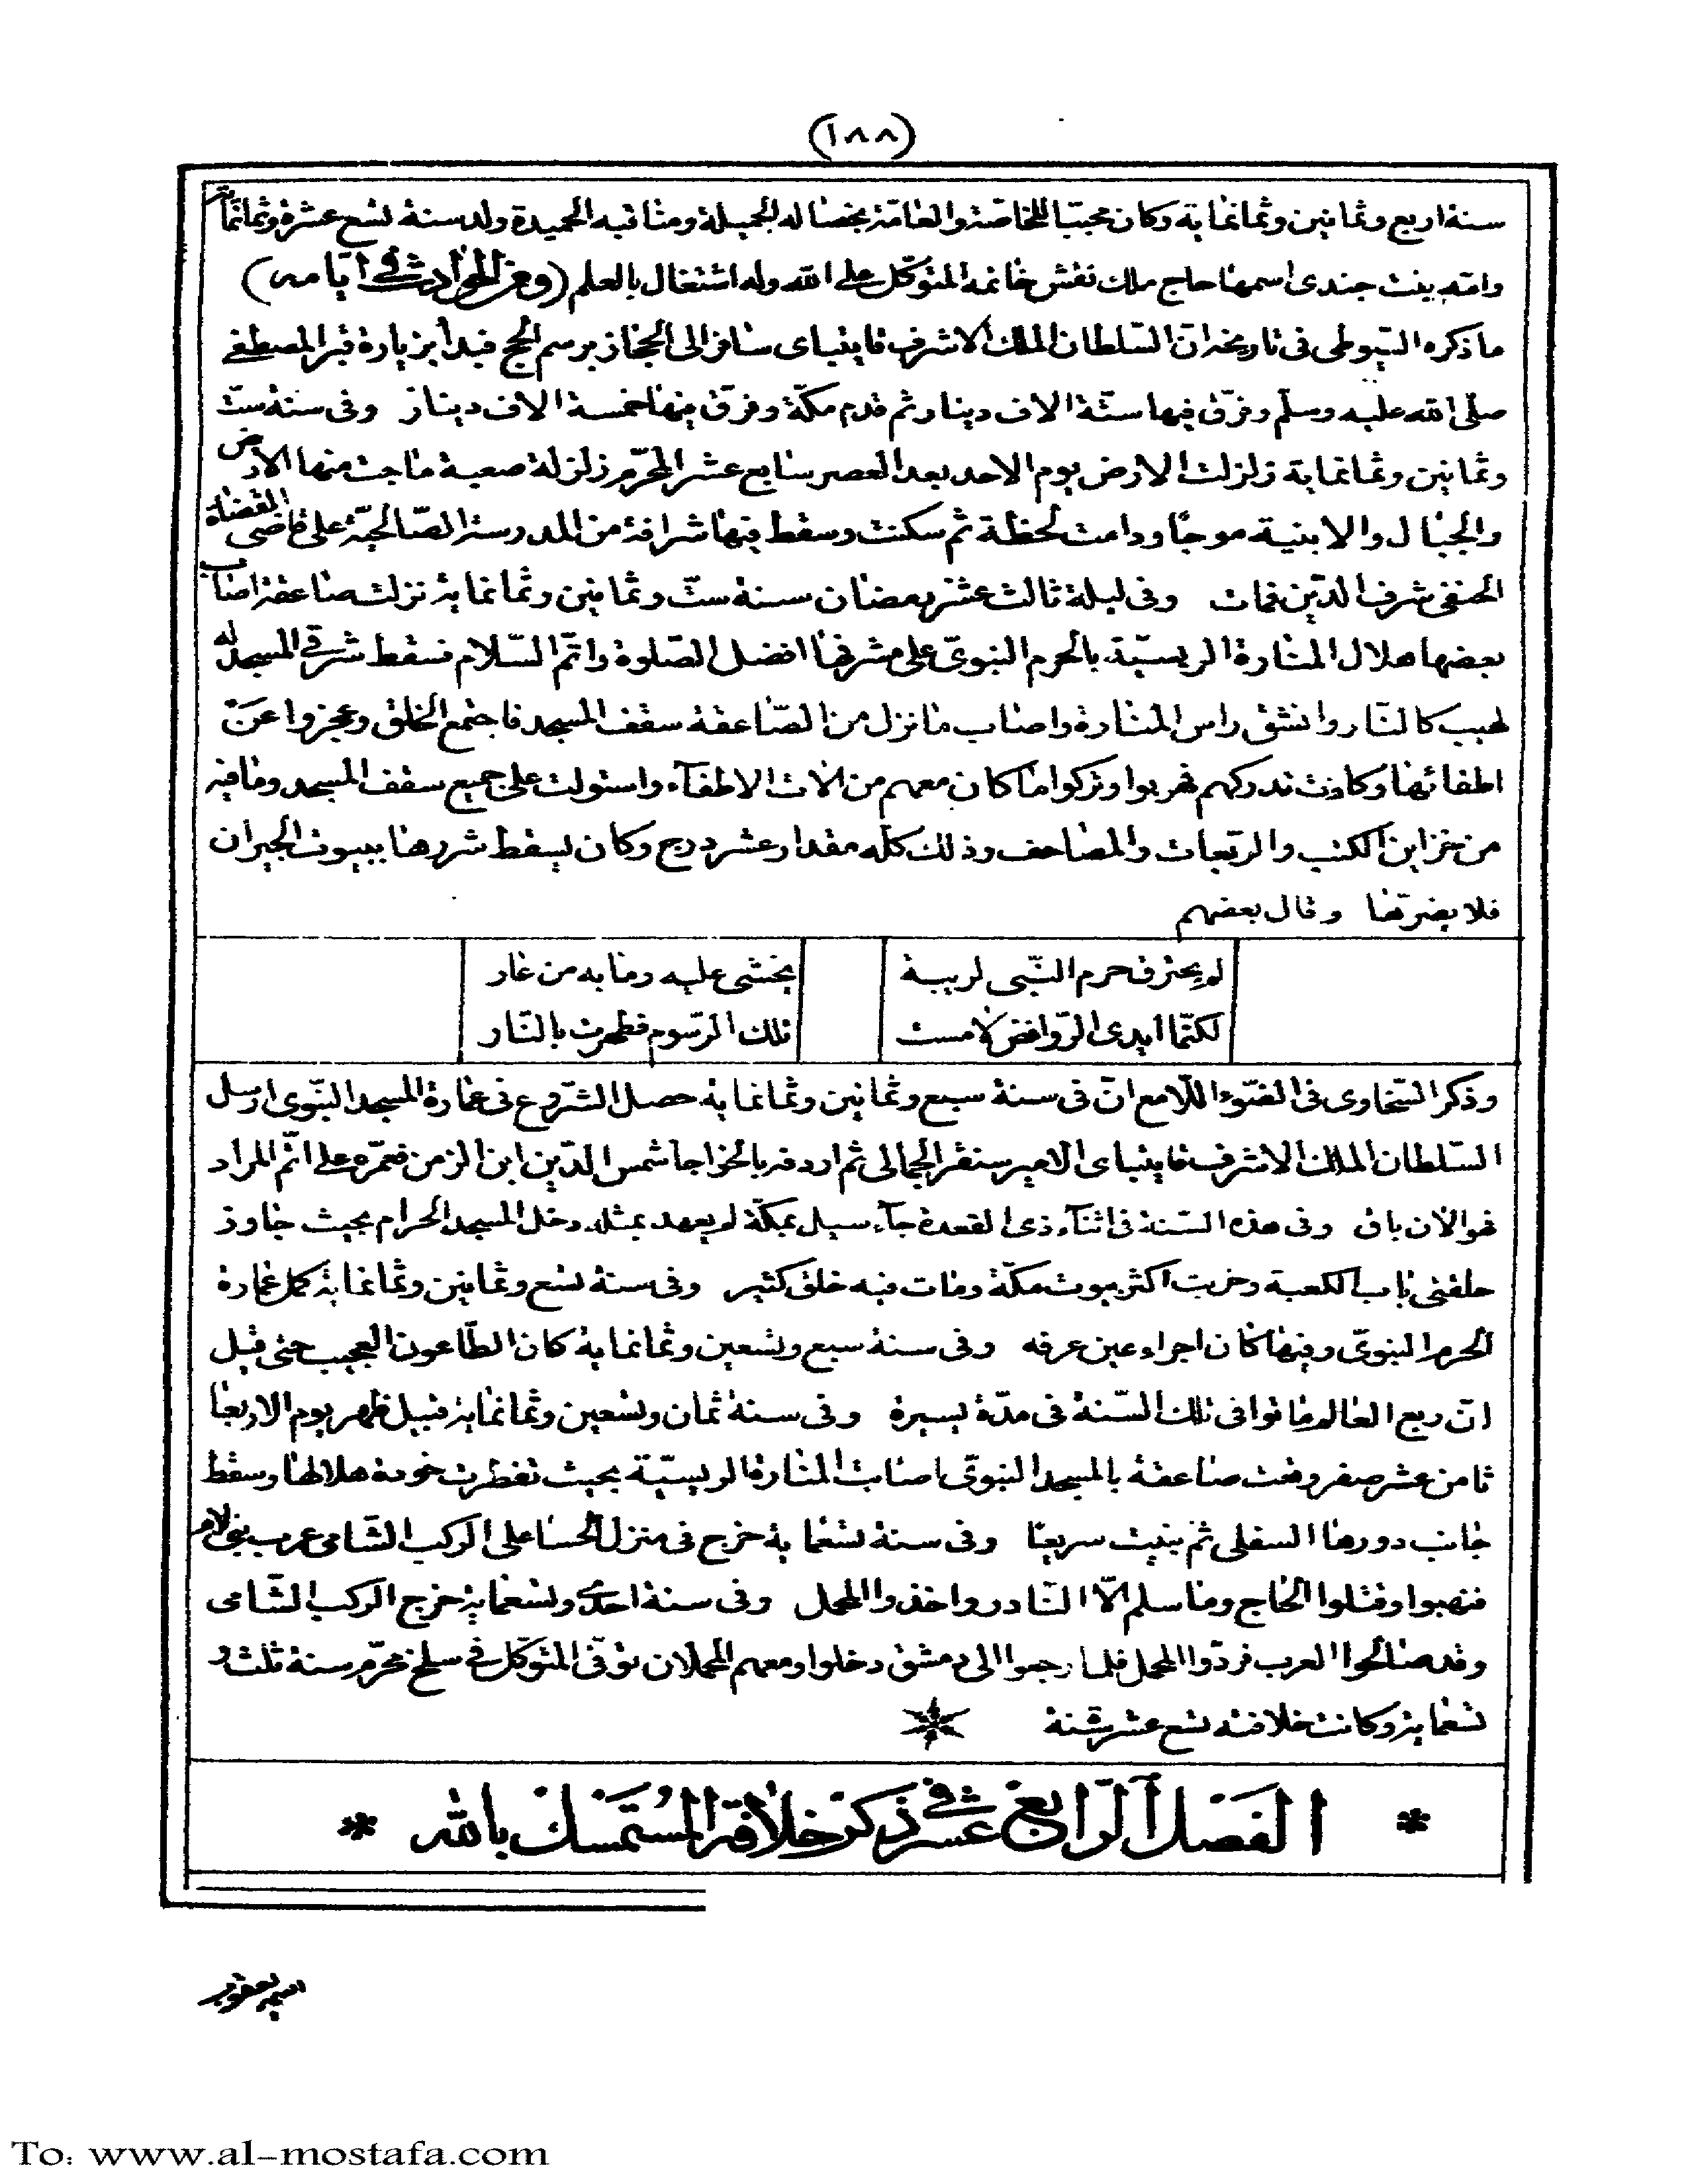 (١٨٨)
سنة اربع وثمانين وثمانماية وكان محببا للخاصة والعامة بخصاله الجميلة ومناقبه الحميدة ولد سنة تسع عشرة وثمانماية
وامه بنت جندى اسمها حاج ملك نقش خاتمه المتوكل على الله وله اشتغال بالعلم (ومن الحوادث فى ايامه)
ما ذكره السيوطى فى تاريخه انّ السّلطان الملك الاشرف قايتباى سافر الى الحجاز برسم الحج فبدأ بزيارة قبر المصطفى
صلّى الله عليه وسلّم وفرّق فيها ستّة الاف دينار ثم قدم مكّة وفرّق فيها خمسة الاف دينار وفى سنة ستّ
وثمانين وثمانماية زلزلت الارض يوم الاحد بعد العصر سابع عشر المحرّم زلزلة صعبة ماجت منها الارض
والجبال والابنية موجًا ودامت لحظة ثم سكنت وسقط فيها شرافة من المدرسة الصّالحيّة على قاضى القضاة
الحنفى شرف الدّين فمات وفى ليلة ثالث عشر رمضان سنة ستّ وثمانين وثمانماية نزلت صاعقة اصاب
بعضها هلال المنارة الريسيّة بالحرم النبوىّ على مشرفها افضل الصّلوة واتمّ السّلام فسقط شرقى المسجد له
لهيب كالنّار وانشق راس المنارة واصاب ما نزل من الصّاعقة سقف المسجد فاجتمع الخلق وعجزوا عن
اطفائها وكادت تدركهم فهربوا وتركوا ما كان معهم من الات الاطفآء واستولت على جميع سقف المسجد وما فيه
من خزاين الكتب والربعات والمصاحف وذلك كلّه مقدار عشر درج وكان يسقط شررها ببيوت الجيران
فلا يضرّها وقال بعضهم
لم يحترق حرم النّبى لريبة يخشى عليه وما به من عار
لكنّما ايدى الرّوافض لامست تلك الرّسوم فطهرت بالنّار
وذكر السّخاوى فى الضّوء اللّامع انّ فى سنة سبع وثمانين وثمانماية حصل الشّروع فى عمارة المسجد النبّوى ارسل
السّلطان الملك الاشرف قايتباى الامير سنقر الجمالى ثم اردفه بالخواجا شمس الدّين ابن الزمن فعمّره على اتمّ المراد
فهو الان باق وفى هذه السّنة فى اثنآء ذى القعدة جآء سيل بمكّة لم يعهد بمثله دخل المسجد الحرام بحيث جاوز
حلقتى باب الكعبة وخربت اكثر بيوت مكّة ومات فيه خلق كثير وفى سنة تسع وثمانين وثمانماية كمل عمارة
الحرم النبوىّ وفيها كان اجراء عين عرفه وفى سنة سبع وتسعين وثمانماية كان الطّاعون العجيب حتى قيل
انّ ربع العالم ماتوا فى تلك السّنة فى مدّة يسيرة وفى سنة ثمان وتسعين وثمانماية قبيل ظهر يوم الاربعا
ثامن عشر صفر وقعت صاعقة بالمسجد النبوىّ اصابت المنارة الريسيّة بحيث تفطرت خوذة هلالها وسقط
جانب دورها السفلى ثم بنيت سريعًا وفى سنة تسعماية خرج فى منزل الحسا على الركب الشّامى عرب بنى لام
فنهبوا وقتلوا الحاج وما سلم الّا النادر واخذوا المحمل وفى سنة احدى وتسعماية خرج الركب الشّامى
وقد صالحوا العرب فردّوا المحمل فلما رجعوا الى دمشق دخلوا ومعهم المحملان توفّى المتوكل فى سلخ محرّم سنة ثلث و
تسعماية وكانت خلافته تسع عشر سنة
* الفصل الرابع عشر فى ذكر خلافة المستمسك بالله *
اسمه يعقوب
To: www.al-mostafa.com